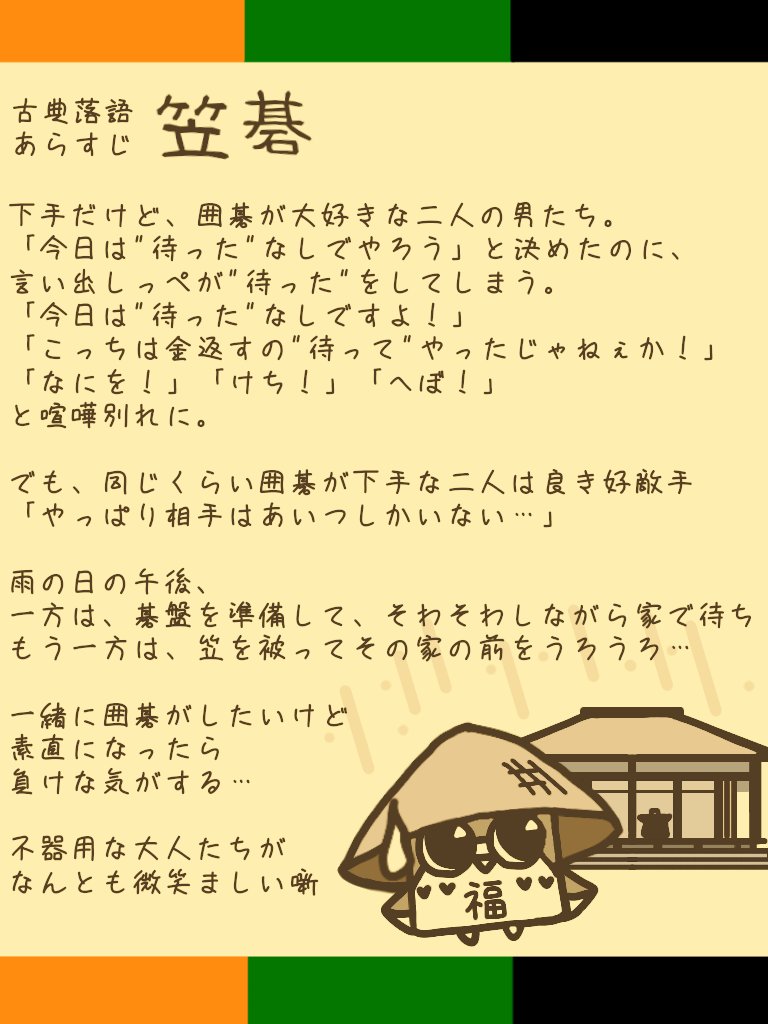 古典落語
あらすじ
笠碁
下手だけど、囲碁が大好きな二人の男たち。
「今日は"待った"なしでやろう」と決めたのに、
言い出しっぺが"待った"をしてしまう。
「今日は"待った"なしですよ！」
「こっちは金返すの"待って"やったじゃねぇか！」
「なにを！」「けち！」「へぼ！」
と喧嘩別れに。
でも、同じくらい囲碁が下手な二人は良き好敵手
「やっぱり相手はあいつしかいない…」
雨の日の午後、
一方は、碁盤を準備して、そわそわしながら家で待ち
もう一方は、笠を被ってその家の前をうろうろ…
一緒に囲碁がしたいけど
素直になったら
負けな気がする…
不器用な大人たちが
なんとも微笑ましい噺
福